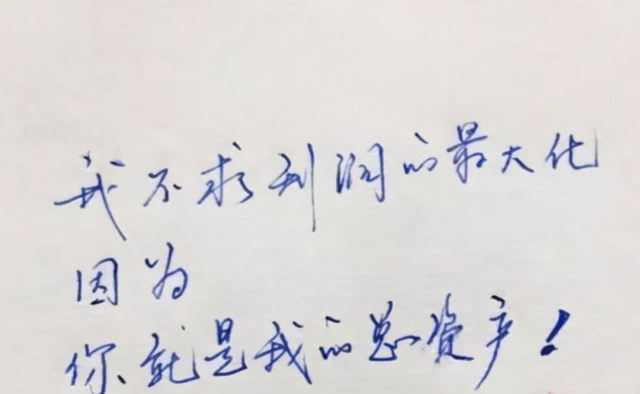 我不求利润的最大化
因为
你就是我的总资产！